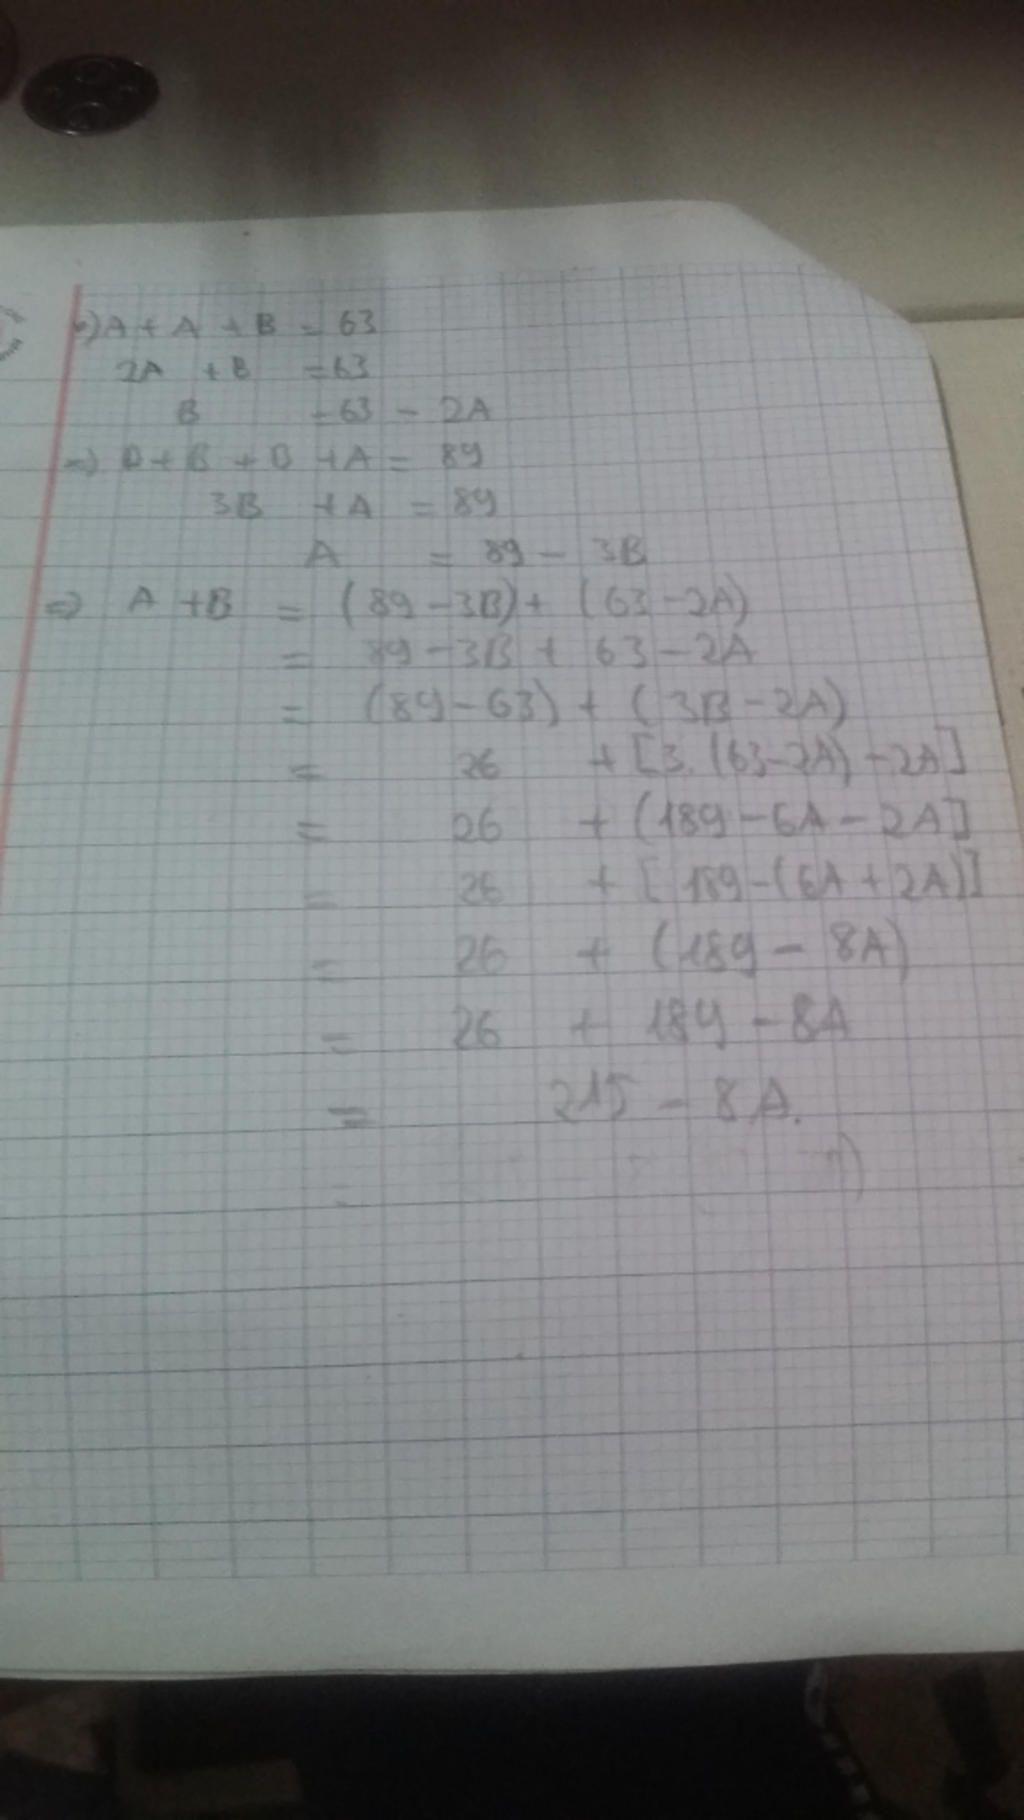 b) A + A + B = 63
2A + B = 63
B = 63 - 2A
=> B + B + B + A = 89
3B + A = 89
A = 89 - 3B
=> A + B = (89 - 3B) + (63 - 2A)
= 89 - 3B + 63 - 2A
= (89 - 63) + (3B - 2A)
= 26 + [3. (63 - 2A) - 2A]
= 26 + (189 - 6A - 2A]
= 26 + [189 - (6A + 2A)]
= 26 + (189 - 8A)
= 26 + 189 - 8A
= 215 - 8A.
=